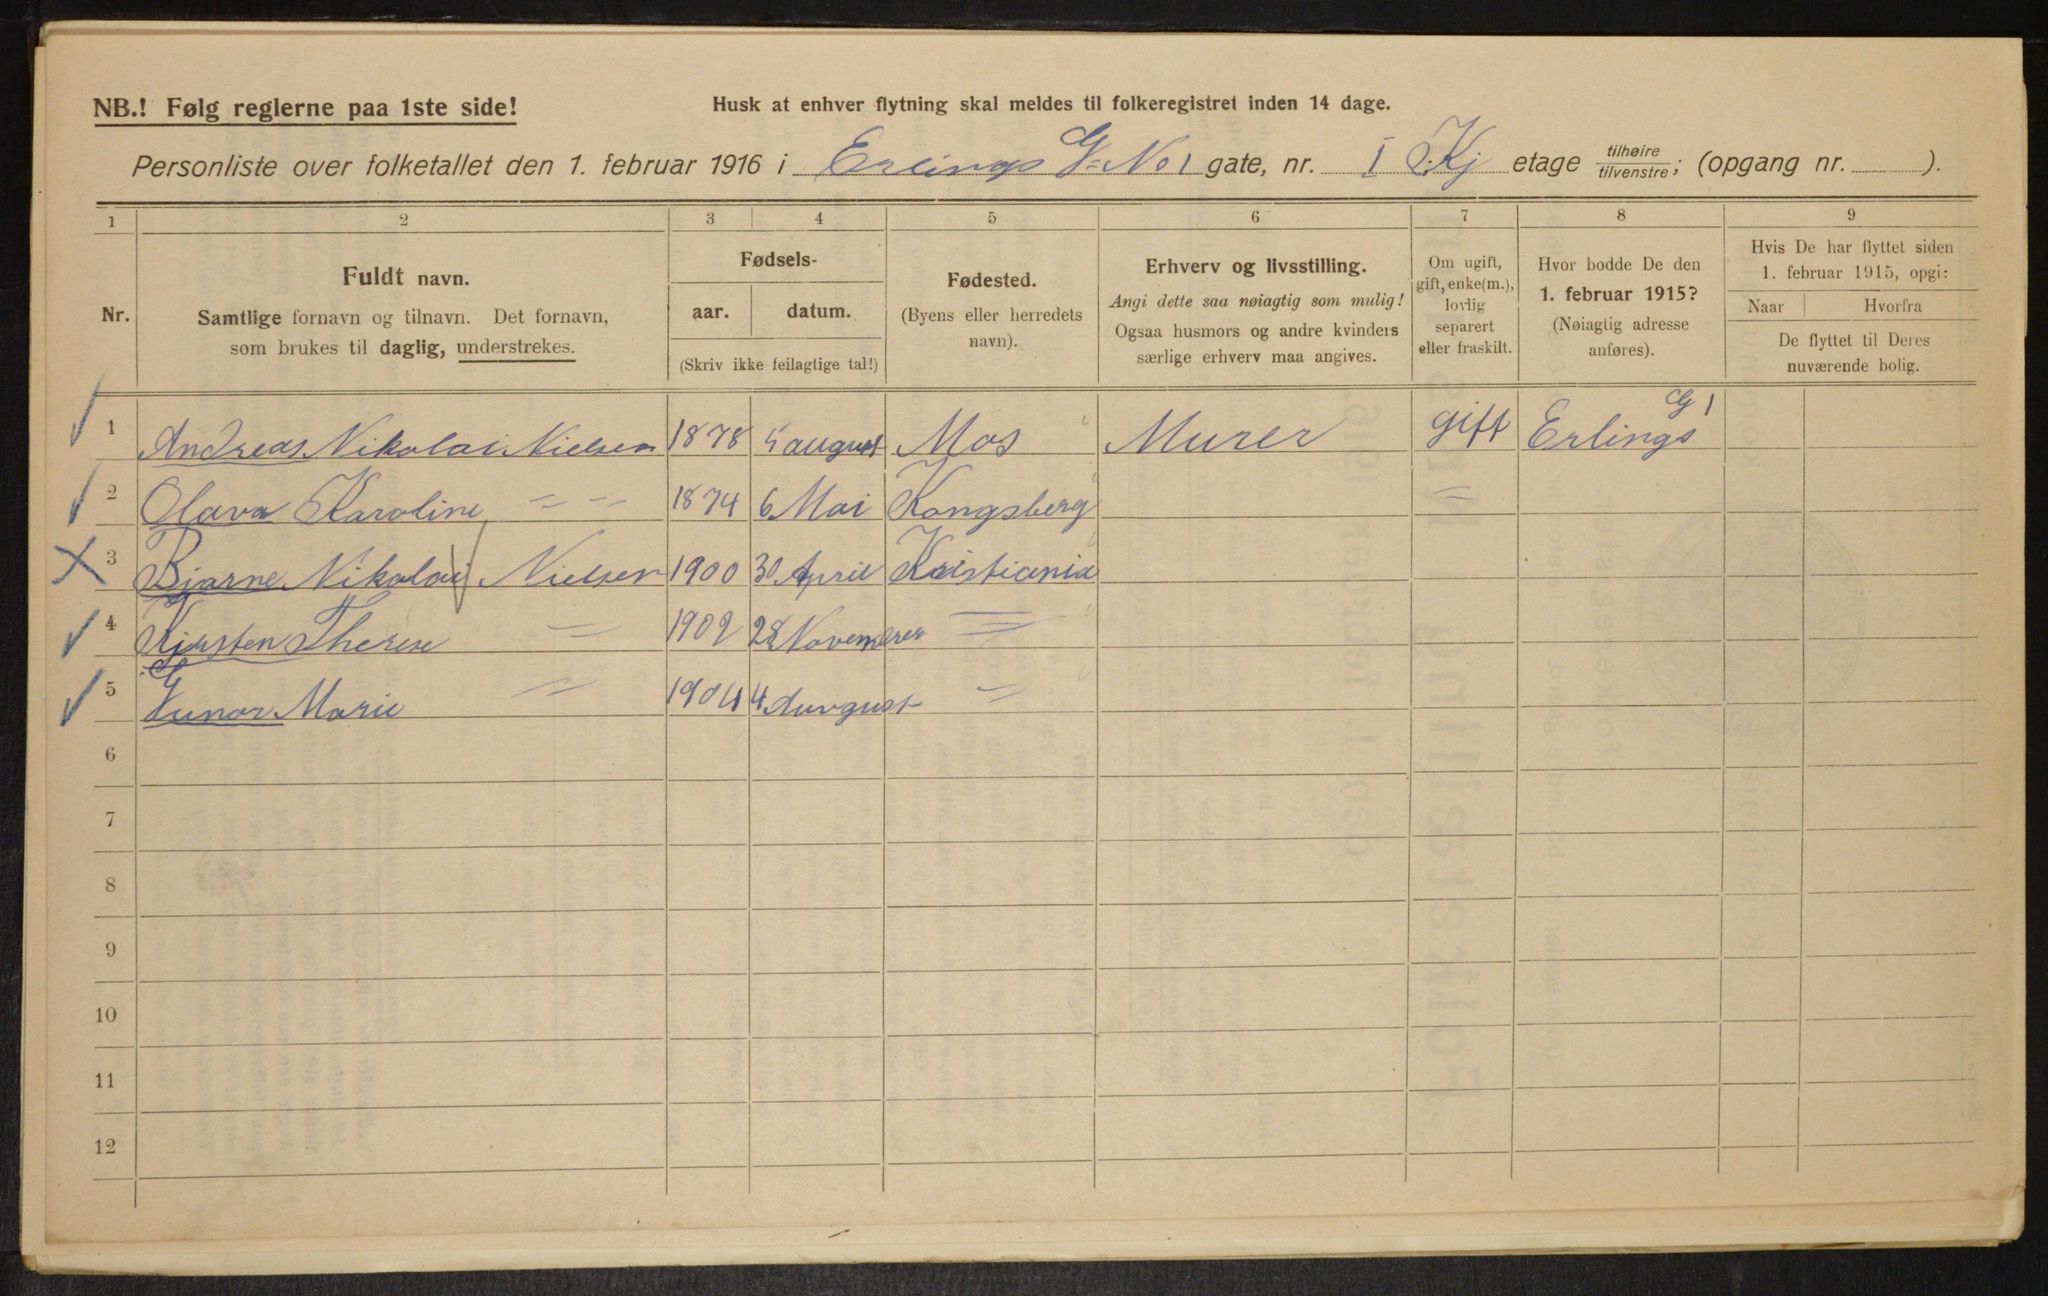 NB.! Følg reglerne paa 1ste side!
Husk at enhver flytning skal meldes til folkeregistret inden 14 dage.
Personliste over folketallet den 1. februar 1916 i Erlings G= No 1 gate, nr. I Kj etage tilhøire/tilvenstre; (opgang nr. ).
1 2 3 4 5 6 7 8 9
Nr.
Fuldt navn.
Samtlige fornavn og tilnavn. Det fornavn,
som brukes til daglig, understrekes.
Fødsels-
aar. datum.
(Skriv ikke feilagtige tal!)
Fødested.
(Byens eller herredets
navn).
Erhverv og livsstilling.
Angi dette saa nøiagtig som mulig!
Ogsaa husmors og andre kvinders
særlige erhverv maa angives.
Om ugift,
gift, enke(m.),
lovlig
separert
eller fraskilt.
Hvor bodde De den
1. februar 1915?
(Nøiagtig adresse
anføres).
Hvis De har flyttet siden
1. februar 1915, opgi:
Naar Hvorfra
De flyttet til Deres
nuværende bolig.
1 Andreas Nikolai Nielsen 1878 5 august Mos Murer gift Erlings G 1
2 Olava Karoline — — 1874 6 Mai Kongsberg =
3 Bjarne Nikolai Nielsen 1900 30 April Kristiania
4 Kirsten Therese = 1902 28 Novemrer =
5 Gunor Marie = 1904 4 Auvgust =
6
7
8
9
10
11
12